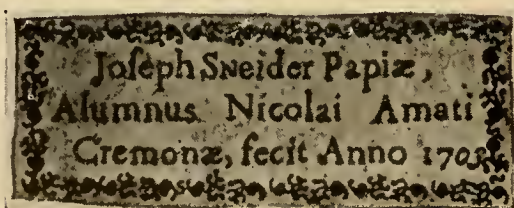 Joseph Sneider Papiæ,
Alumnus Nicolai Amati
Cremonæ, fecit Anno 1703